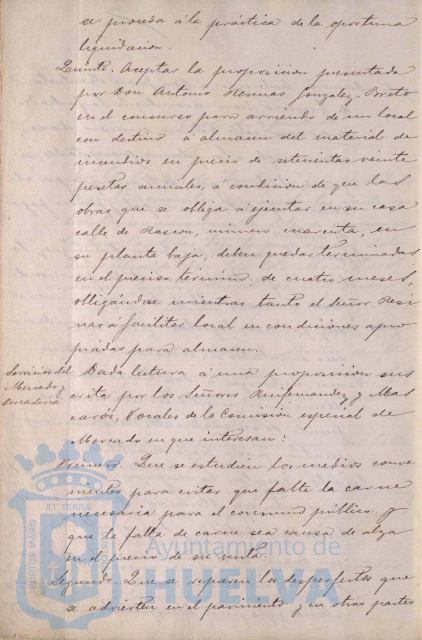 se proceda á la práctica de la oportuna
liquidacion.
Quinto. Aceptar la proposicion presentada
por Don Antonio Resinas Gonzalez-Prieto
en el concurso para arriendo de un local
con destino á almacen del material de
incendios en precio de setecientas veinte
pesetas anuales, á condicion de que las
obras que se obliga á ejecutar en su casa
calle de Rascon, número cuarenta, en
su planta baja, deben quedar terminadas
en el preciso término de cuatro meses,
obligándose mientras tanto el Señor Resi
nas á facilitar local en condiciones apro
piadas para almacen.
Servicios del
Mercado y
Pescaderia
Dada lectura á una proposicion sus
crita por los Señores y Mas
carós, Vocales de la Comisión especial de
Mercado en que interesan:
Primero. Que se estudien los medios conve
nientes para evitar que falte la carne
necesaria para el consumo público y
que la falta de carne sea causa de alza
en el precio de su venta.
Segundo. Que se reparen los desperfectos que
se advierten en el pavimento y en otras partes
PORTUS MARIS
ET TERRÆ
Ayuntamiento de
HUELVA